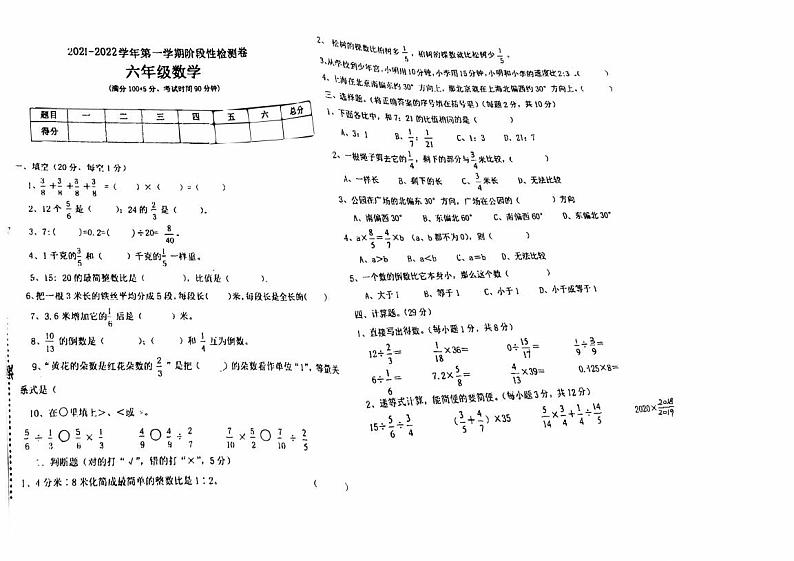 2021-2022学年第一学期阶段性检测卷
六年级数学
(满分100+5分，考试时间90分钟)
题目 一 二 三 四 五 六 总分
得分
一、填空(20分，每空1分)
1、3/8+3/8+3/8+3/8=( )×( )=( )
2、12个5/6是( )；24的2/3是( )。
3、7:( )=0.2=( )÷20=8/40.
4、1千克的3/5和( )千克的1/5一样重。
5、15：20的最简整数比是( )，比值是( )。
6、把一根3米长的铁丝平均分成5段，每段长( )米，每段长是全长的( )
7、3.6米增加它的1/6后是( )米。
8、10/13的倒数是( )；( )和1/4互为倒数。
9、“黄花的朵数是红花朵数的2/3”是把( )的朵数看作单位“1”，等量关
系式是(
10、在○里填上>、<或=。
5/6÷1/3○5/6×1/3 4/9○4/9÷2/7 7/10×5/2○7/10÷2/5
二、判断题(对的打“√”，错的打“×”，5分)
1、4分米：8米化简成最简单的整数比是1：2。 ( )
2、松树的棵数比柏树多1/5，柏树的棵数就比松树少1/5。
3、从学校到少年宫，小明用10分钟，小李用15分钟，小明和小李的速度比2:3.( )
4、上海在北京南偏东约30°方向上，那北京就在上海北偏西约30°方向上。( )
三、选择题。(将正确答案的序号填在括号里)(每题2分，共10分)
1、下面各比中，和7：21的比值相同的是( )
A、3：1 B、1/7：1/21 C、1：3 D、21：7
2、一根绳子剪去它的1/4，剩下的部分与3/4米比较，( )
A、一样长 B、剩下的长 C、3/4米长 D、无法比较
3、公园在广场的北偏东30°方向，广场在公园的( )方向
A、南偏西30° B、东偏北60° C、南偏西60° D、东偏北30°
4、a×8/5=4/7×b(a、b都不为0)，则( )
A、a>b B、a<b C、a=b D、无法比较
5、一个数的倒数比它本身小，那么这个数( )
A、大于1 B、等于1 C、小于1 D、小于或等于1
四、计算题。(29分)
1、直接写出得数。(每小题1分，共8分)
12÷2/3= 1/18×36= 0÷15/17= 1/9÷3/9=
6÷1/6= 7.2×5/8= 4/13×39= 0.125×8=
2、递等式计算，能简便的要简便。(每小题3分，共12分)
15÷5/6÷3/4 (3/5+4/7)×35 5/14×3/4+1/4÷14/5 2020×2018/2019